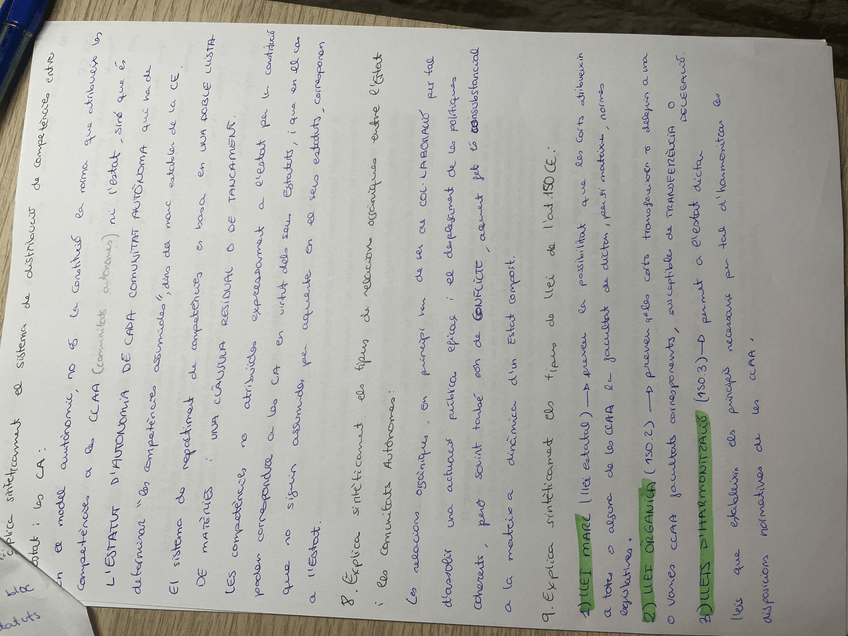 explica sintèticament el sistema de distribució de competències entre
estat i les CA:
en el model autonòmic, no és la constitució la norma que atribueix les
competències a les CCAA (comunitats autònomes) ni l'estat, sinó que és
L'ESTATUT D'AUTONOMIA DE CADA COMUNITAT AUTÒNOMA qui ha de
determinar "les competències assumides", dins del marc establert de la CE.
El sistema de repartiment de competències es basa en UNA DOBLE LLISTA
DE MATÈRIES i UNA CLÀUSULA RESIDUAL O DE TANCAMENT.
LES competències no atribuïdes expressament a l'estat per la constitució
poden correspondre a les CA en virtut dels seus Estatuts, i que en el cas
que no siguin assumides per aquests en els seus estatuts, corresponen
a l'Estat.
8. Explica sintèticament els tipus de relacions orgàniques entre l'Estat
i les comunitats Autònomes:
Les relacions orgàniques, en principi han de ser de COL·LABORACIÓ per tal
d'assolir una actuació pública eficaç i el desplegament de les polítiques
coherents, però sovint també són de CONFLICTE, aquest fet és consubstancial
a la mateixa dinàmica d'un Estat compost.
9. Explica sintèticament els tipus de llei de l'art.150 CE:
1) LLEI MARC (llei estatal) → preveu la possibilitat que les Corts atribueixin
a totes o alguna de les CCAA la facultat de dictar, per si mateixes, normes
legislatives.
2) LLEI ORGÀNICA (150.2) → preveu q les corts transfereixin o deleguin a una
o varies CCAA facultats corresponents, susceptibles de TRANSFERÈNCIA O DELEGACIÓ.
3) LLEIS D'HARMONITZACIÓ (150.3) → permet a l'estat dictar
lleis que estableixin els principis necessaris per tal d'harmonitzar les
disposicions normatives de les CCAA.
bloc